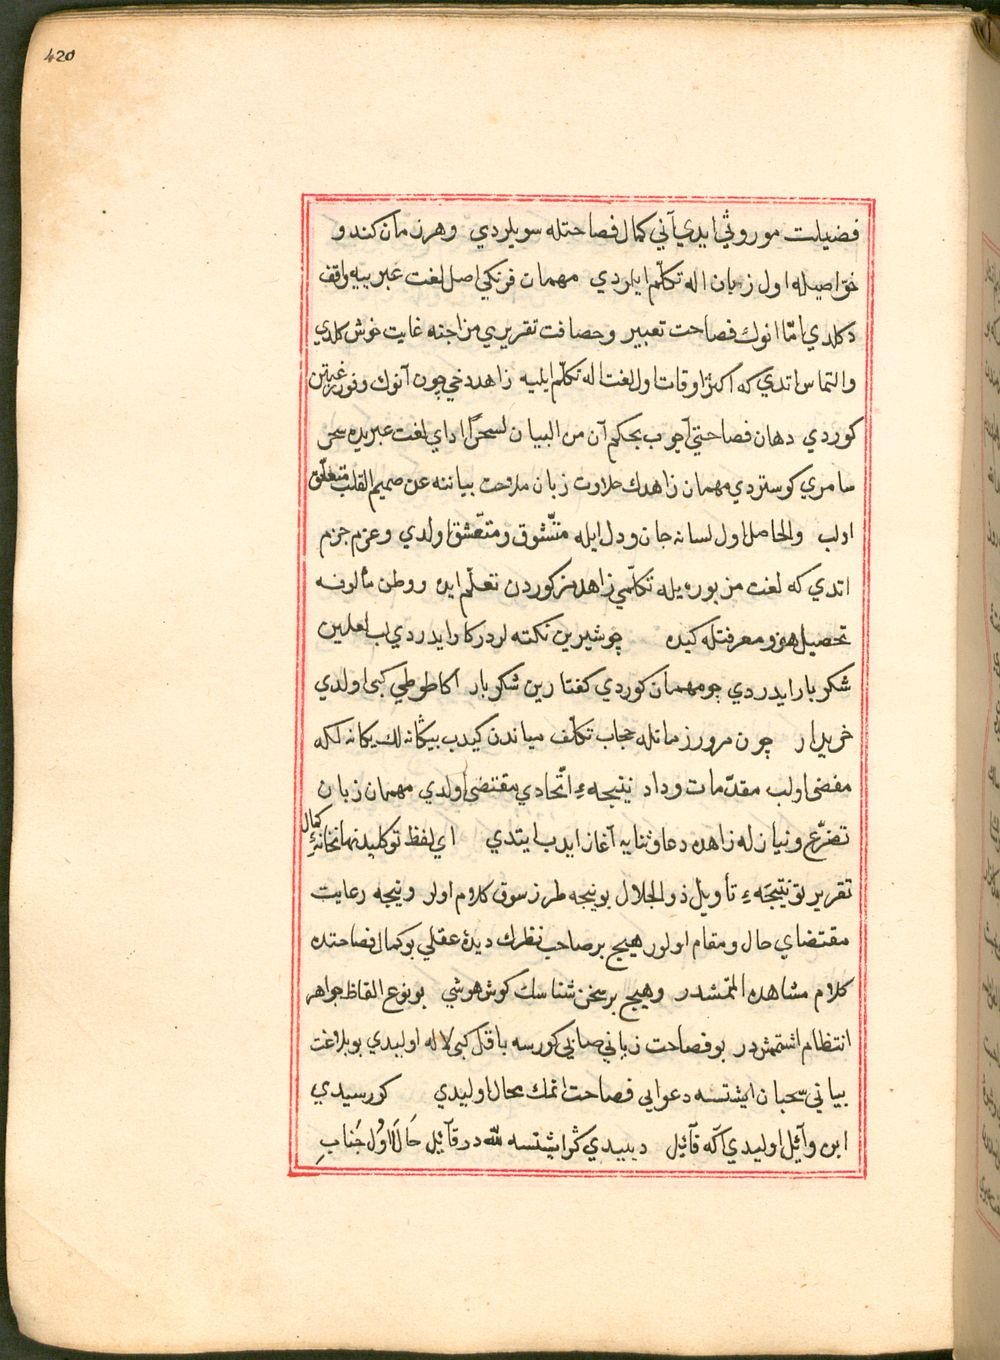 420
فضيلت موروثي ايدي آني كمال فصاحتله سويلردي وهر زمان كندو
خواصيله اول زبان اله تكلّم ايلردي مهمان فرنكي اصل لغت عبرييه واقف
دكلدي امّا انوك فصاحت تعبير وحصافت تقريري مزاجنه غايت خوش كلدي
والتماس اتدي كه اكثر اوقات اول لغت اله تكلّم ايليه زاهد دخي چون آنوك وفور رغبتن
كوردي دهان فصاحتي آچوب بحكم آن من البيان لسحرًا اداي لغت عبريده سحر
سامري كوستردي مهمان زاهدك حلاوت زبان ملاحت بياننه عن صميم القلب متعلّق
اولب والحاصل اول لسانه جان ودل ايله متشّوق ومتعّشق اولدي وعزم جزم
اتدي كه لغت مزبوره يله تكلّمي زاهد مزكوردن تعلّم ايده ووطن مألوفه
تحصيل هنر ومعرفتله كيده چو شيرين نكته لر دركار ايدردي لب لعلين
شكربار ايدردي چو مهمان كوردي كفتارين شكربار آكا طوطي كبي اولدي
خريدار چون مرور زمانله حجاب تكلّف مياندن كيدب بيكانه لك يكانه لكه
مفضى اولب مقدّمات وداد نتيجهء اتّحادي مقتضى اولدي مهمان زبان
تضرّع ونيازله زاهده دعا وثنايه آغاز ايدب ايتدي اي لفظ تو كليد نهانخانهٔ كمال
تقرير تو نتيجهء تأويل ذو الجلال بو نيجه طرز سوق كلام اولر ونيجه رعايت
مقتضاي حال ومقام اولور هيچ بر صاحب نظرك ديدهٔ عقلي بو كمال فصاحتده
كلام مشاهده اتمشدر وهيچ بر سخن شناسك كوش هوشي بو نوع الفاظ جواهر
انتظام اشتمش در بو فصاحت زباني صاني كورسه باقل كبي لاله اوليدي بو بلاغت
بياني سحبان ايشتسه دعوايي فصاحت اتمك محال اوليدي كورسيدي
ابن وآئل اوليدي آكه قآئل ديييدي كر ايشتسه لله در قآئل حالا اول جناب